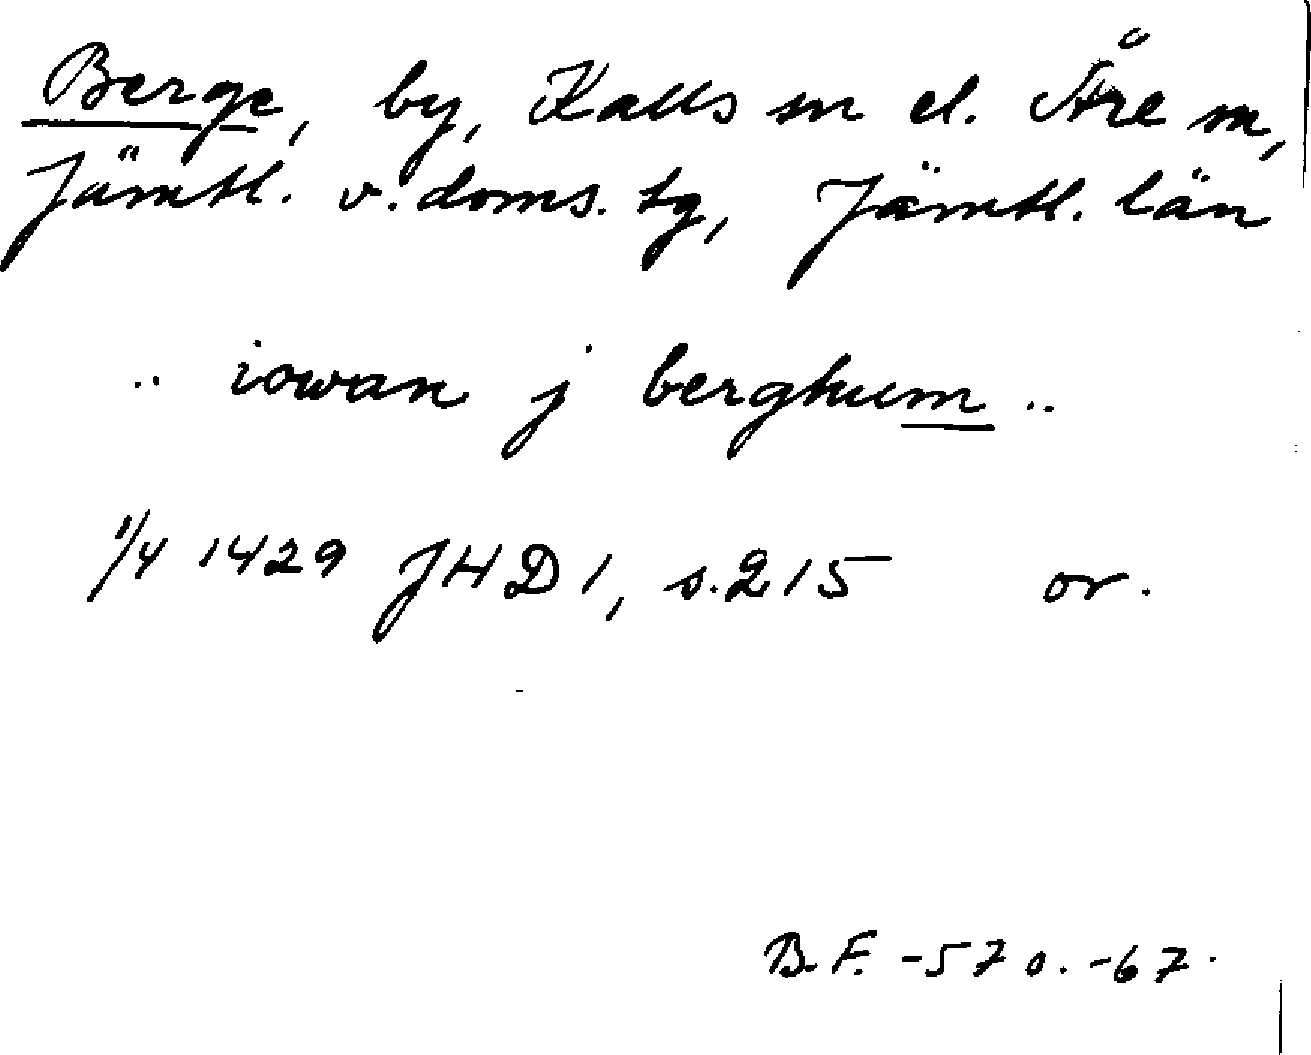 Berge, by, Kalls sn el. Åre sn,
Jämtl. v. doms. tg, Jämtl. län
.. iowan j berghum ..
1/4 1429 JHD 1, s. 215 or.
B.F. -57 o. -67.